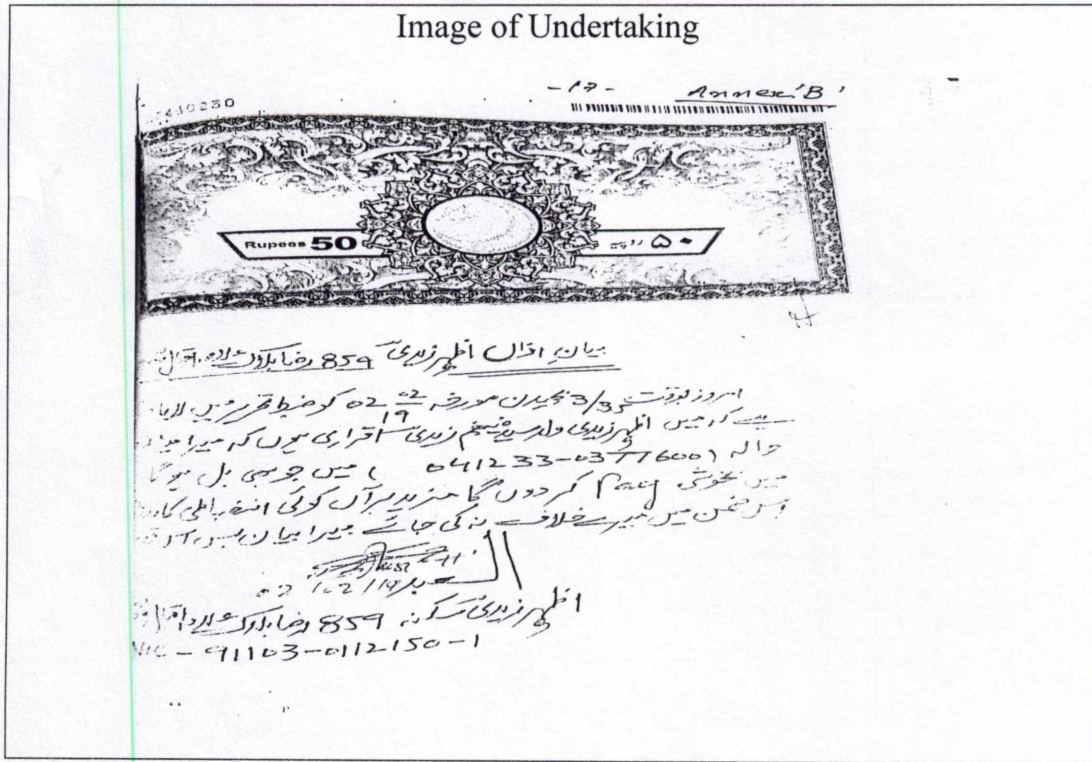 Image of Undertaking
-17- Annex 'B'
440230
Rupees 50 ۵۰ روپیہ
بیان ازاں اظہر زیدی 859 رضا بلاک علامہ اقبال
امروز بوقت 3/35 بجیدن مورخہ 02-02-19 کو ضبط تحریر میں لایا
ہے کہ میں اظہر زیدی ولد سید زیدی اقراری ہوں کہ میرا
حوالہ (041233-0377600) میں جو بھی بل ہوگا
میں بخوشی Pay کر دوں گا مزید برآں کوئی انضباطی
اس ضمن میں میرے خلاف نہ کی جائے میرا بیان بس
العبد
02/02/19
اظہر زیدی سکنہ 859 رضا بلاک علامہ اقبال
NIC - 91103-0112150-1